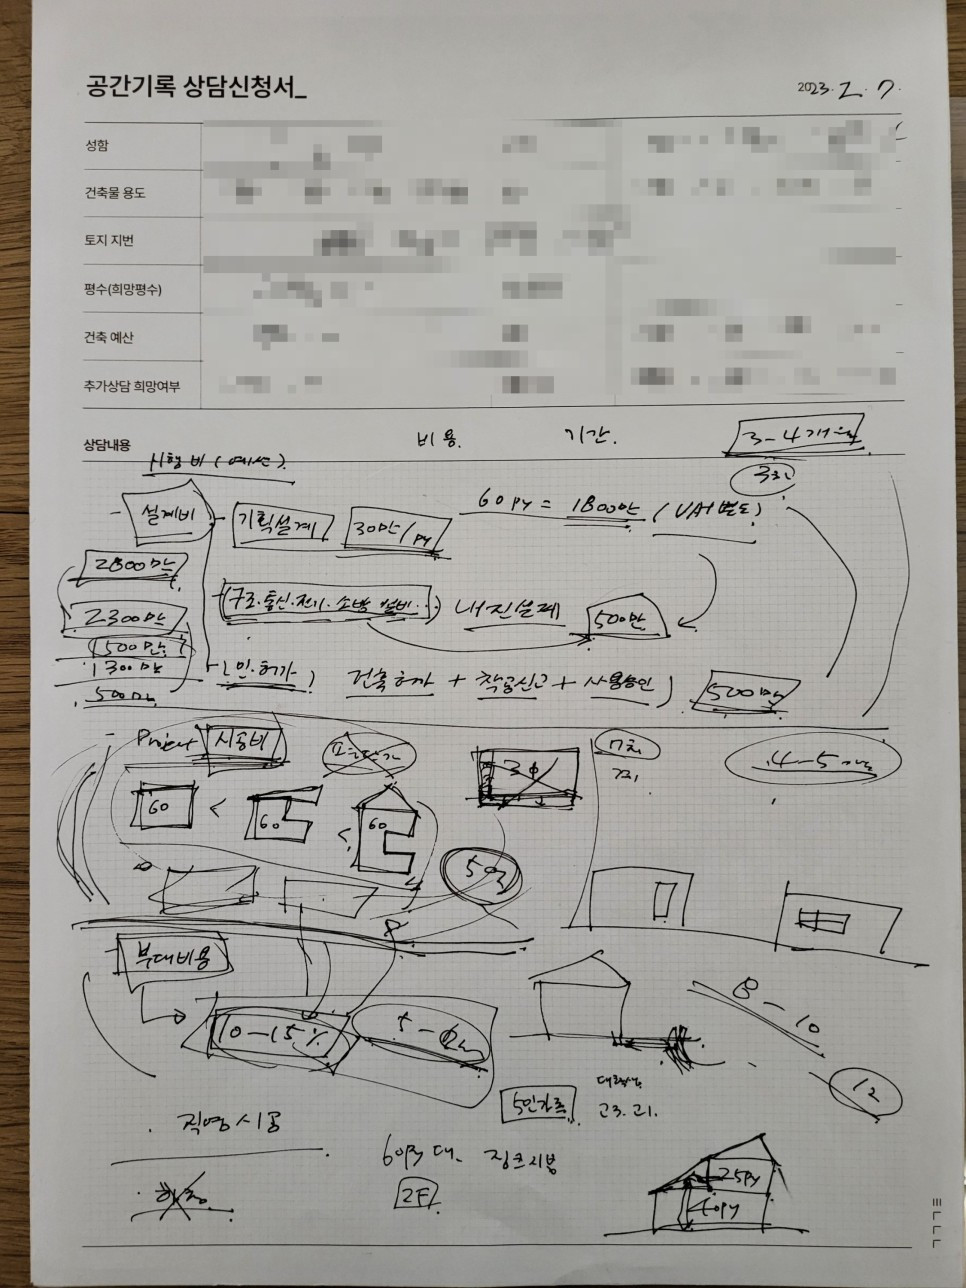 공간기록 상담신청서_
2023. 2. 7.
성함
건축물 용도
토지 지번
평수(희망평수)
건축 예산
추가상담 희망여부
상담내용
비용. 기간. 3-4개월
시행비(예산).
설계비
기획설계 30만/py 60py = 1800만 (VAT별도)
2800만
구조·통신·전기·소방 설비.. 내진설계 500만
2300만
1500만
1300만
500만
인·허가) 건축허가 + 착공신고 + 사용승인) 500만
Project 시공비
4-5개월
60 < 60 < 60
5억
부대비용
10-15%
8-10
12
5인가족
고3. 21.
직영시공
60py대 징크지붕
2F
25py
40py